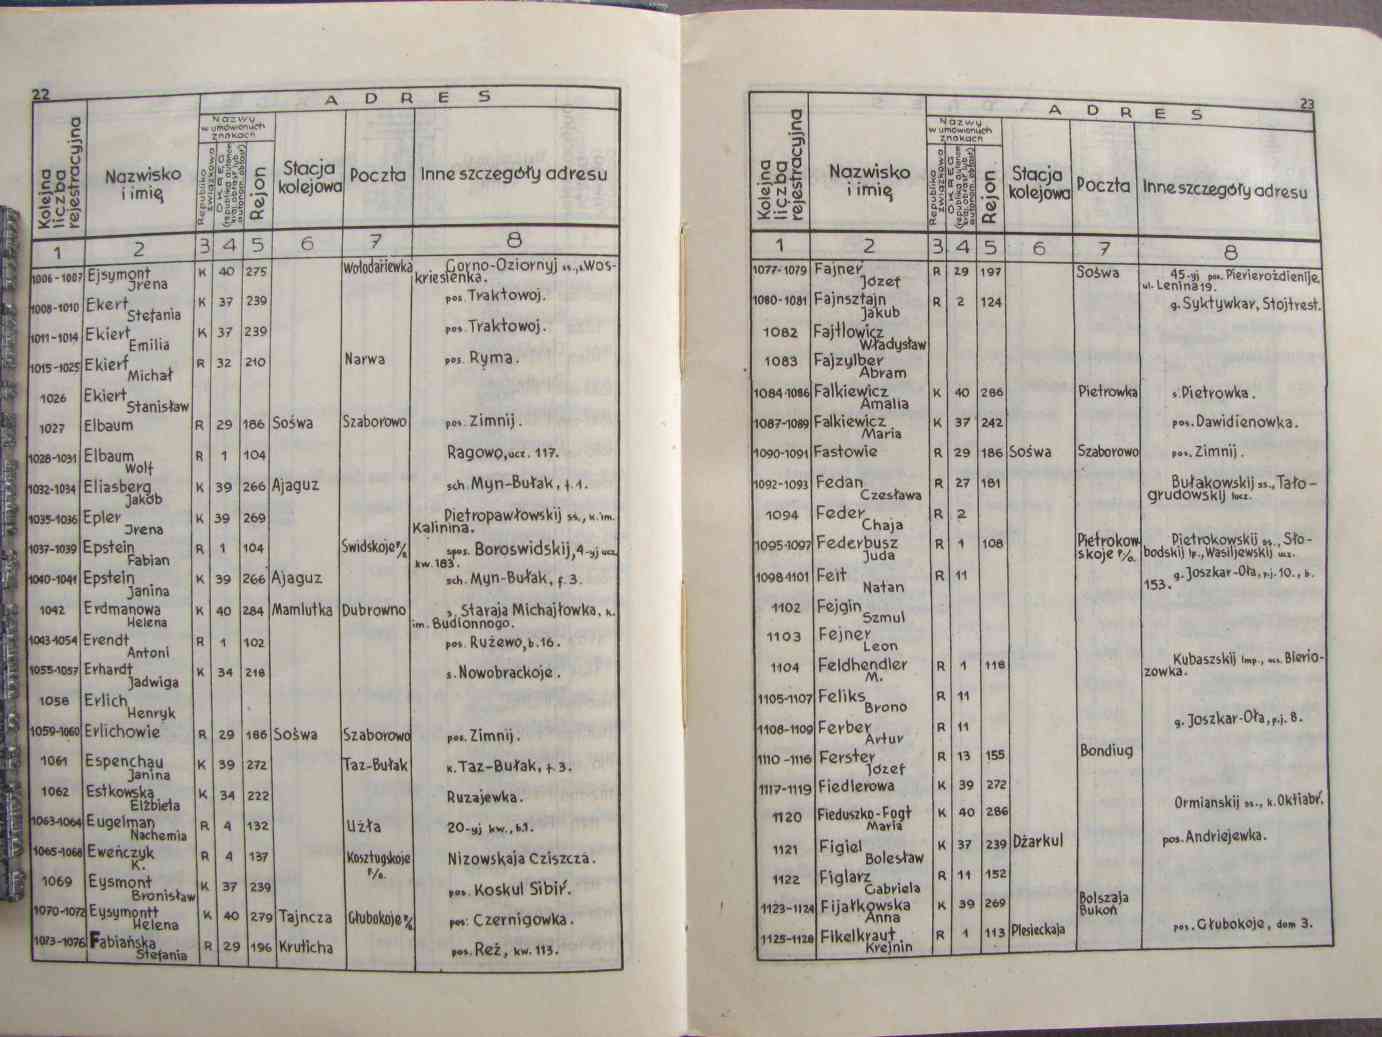 22
A D R E S
Kolejna liczba rejestracyjna
Nazwisko i imię
Nazwy w umówionych znakach
Republika związkowa
OKRĘG
Rejon
Stacja kolejowa
Poczta
Inne szczegóły adresu
1 2 3 4 5 6 7 8
1006-1007 Ejsymont Irena K 40 275 Wołodariewka Gorno-Oziornyj ss., s.Wos-
kriesienka.
1008-1010 Ekert Stefania K 37 239 pos. Traktowoj.
1011-1014 Ekiert Emilia K 37 239 pos. Traktowoj.
1015-1025 Ekierf Michał R 32 210 Narwa pos. Ryma.
1026 Ekiert Stanisław
1027 Elbaum R 29 186 Sośwa Szaborowo pos. Zimnij.
1028-1031 Elbaum Wolf R 1 104 Ragowo, ucz. 117.
1032-1034 Eliasberg Jakób K 39 266 Ajaguz sch. Myn-Bułak, f. 1.
1035-1036 Epler Irena K 39 269 Pietropawłowskij ss., k. im.
Kalinina.
1037-1039 Epstein Fabian R 1 104 Swidskoje P/o. spos. Boroswidskij, 4-yj ucz.
kw. 183.
1040-1041 Epstein Janina K 39 266 Ajaguz sch. Myn-Bułak, f. 3.
1042 Erdmanowa Helena K 40 284 Mamlutka Dubrowno s. Staraja Michajłowka, k.
im. Budionnogo.
1043-1054 Erendt Antoni R 1 102 pos. Rużewo, b. 16.
1055-1057 Erhardt Jadwiga K 34 218 s. Nowobrackoje.
1058 Erlich Henryk
1059-1060 Erlichowie R 29 186 Sośwa Szaborowo pos. Zimnij.
1061 Espenchau Janina K 39 272 Taz-Bułak k. Taz-Bułak, f. 3.
1062 Estkowska Elżbieta K 34 222 Ruzajewka.
1063-1064 Eugelman Nachemia R 4 132 Użła 20-yj kw., b.1.
1065-1068 Eweńczyk K. R 4 137 Kosztugskoje P/o. Nizowskaja Cziszcza.
1069 Eysmont Bronisław K 37 239 pos. Koskul Sibiŕ.
1070-1072 Eysymontt Helena K 40 279 Tajncza Głubokoje P/o. pos. Czernigowka.
1073-1076 Fabiańska Stefania R 29 196 Kruticha pos. Reż, kw. 113.
23
A D R E S
Kolejna liczba rejestracyjna
Nazwisko i imię
Nazwy w umówionych znakach
Republika związkowa
OKRĘG
Rejon
Stacja kolejowa
Poczta
Inne szczegóły adresu
1 2 3 4 5 6 7 8
1077-1079 Fajner Józef R 29 197 Sośwa 45-yj pos. Pierierożdienije,
ul. Lenina 19.
1080-1081 Fajnsztajn Jakub R 2 124 g. Syktywkar, Stojtrest.
1082 Fajtlowicz Władysław
1083 Fajzylber Abram
1084-1086 Falkiewicz Amalia K 40 286 Pietrowka s. Pietrowka.
1087-1089 Falkiewicz Maria K 37 242 pos. Dawidienowka.
1090-1091 Fastowie R 29 186 Sośwa Szaborowo pos. Zimnij.
1092-1093 Fedan Czesława R 27 181 Bułakowskij ss., Tało-
grudowskij lucz.
1094 Feder Chaja R 2
1095-1097 Federbusz Juda R 1 108 Pietrokowskoje P/o. Pietrokowskij ss., Sło-
bodskij lp., Wasiljewskij ucz.
1098-1101 Feit Natan R 11 g. Joszkar-Oła, p.j. 10., b.
153.
1102 Fejgin Szmul
1103 Fejner Leon
1104 Feldhendler M. R 1 118 Kubaszskij lmp., ucz. Bierio-
zowka.
1105-1107 Feliks Brono R 11
1108-1109 Ferber Artur R 11 g. Joszkar-Oła, p.j. 8.
1110-1116 Ferster Józef R 13 155 Bondiug
1117-1119 Fiedlerowa K 39 272
1120 Fieduszko-Fogt Maria K 40 286 Ormianskij ss., k. Oktiabŕ.
1121 Figiel Bolesław K 37 239 Dżarkul pos. Andriejewka.
1122 Figlarz Gabriela R 11 152
1123-1124 Fijałkowska Anna K 39 269 Bolszaja Bukoń
1125-1128 Fikelkraut Krejnin R 1 113 Plesieckaja pos. Głubokoje, dom 3.